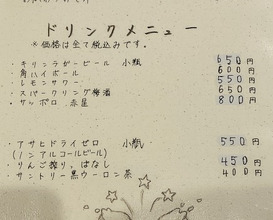 ドリンクメニュー
※価格は全て税込みです。
・キリンラガービール 小瓶 650円
・角ハイボール 600円
・レモンサワー 550円
・スパークリング梅酒 650円
・サッポロ 赤星 800円
・アサヒドライゼロ 小瓶 550円
(ノンアルコールビール)
・りんご搾り。はなし 450円
・サントリー黒ウーロン茶 400円